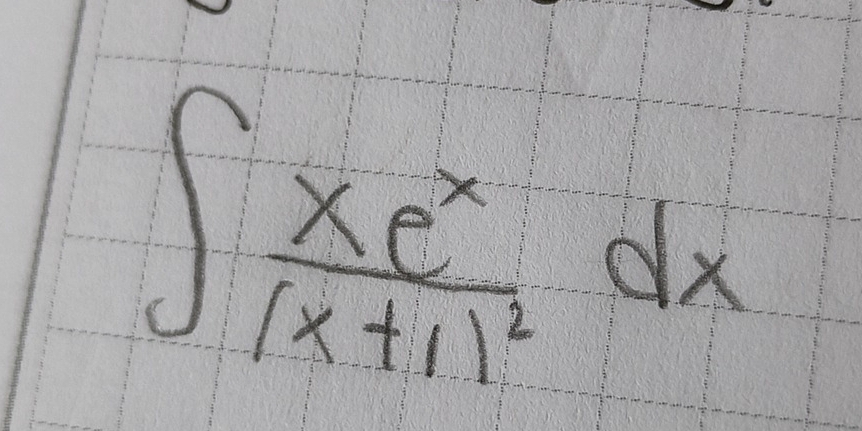 ∫ xeˣ/(x+1)² dx